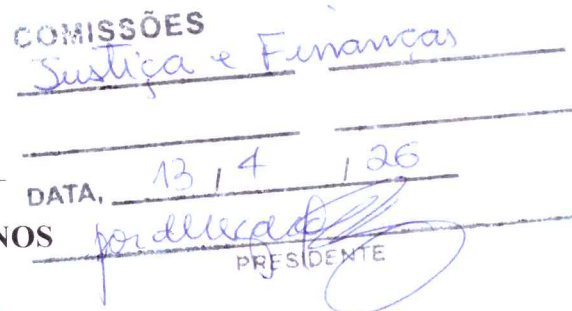 COMISSÕES
Justiça e Finanças
DATA, 13 / 4 / 26
NOS
PRESIDENTE